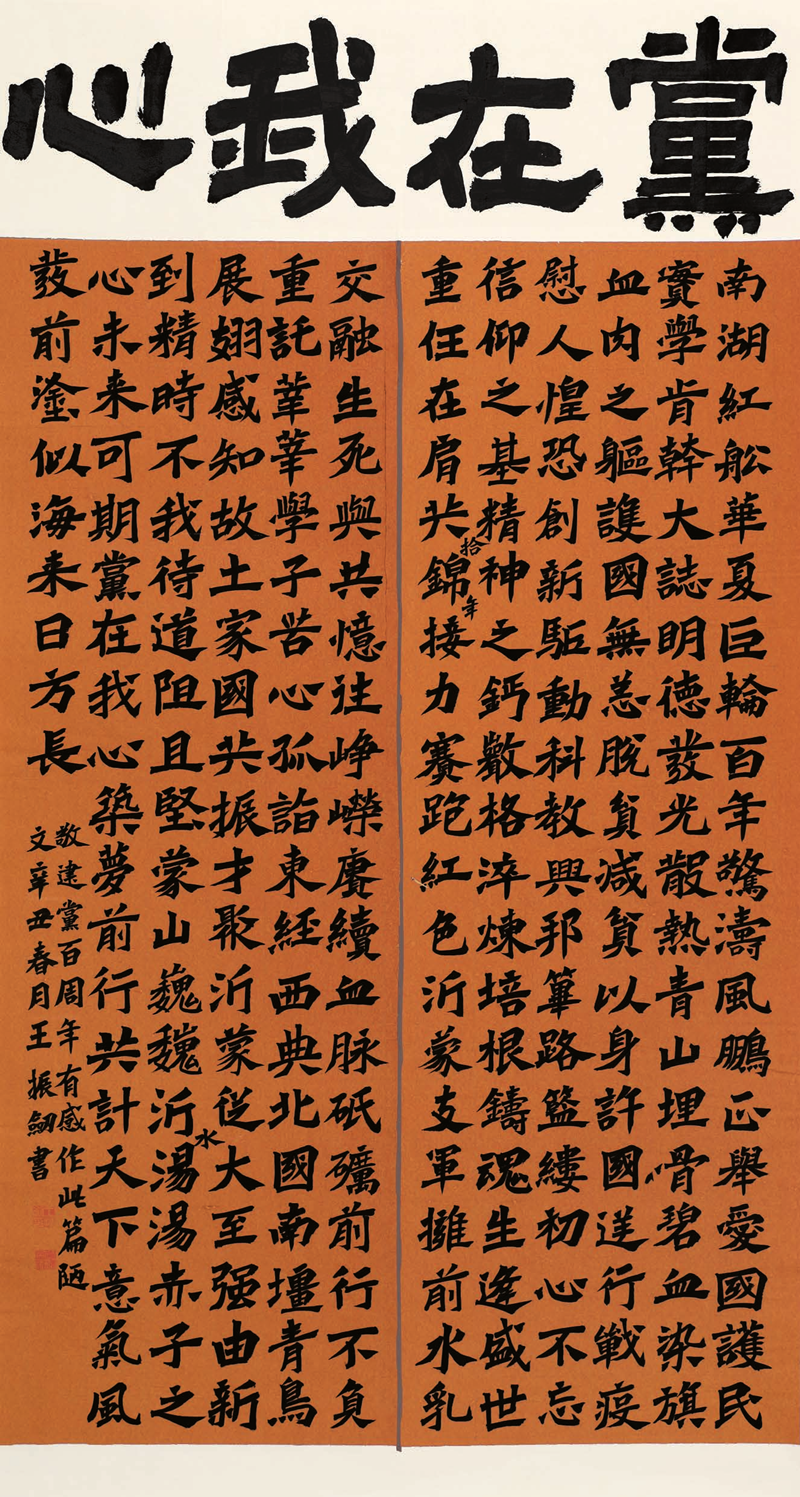 黨在我心
南湖紅船華夏巨輪百年驚濤風鵬正舉愛國護民
實學肯幹大誌明德發光散熱青山埋骨碧血染旗
血肉之軀護國無恙脫貧減貧以身許國逆行戰疫
慰人惶恐創新駈動科教興邦篳路籃縷初心不忘
信仰之基精神之鈣數格淬煉培根鑄魂生逢盛世
重任在肩共錦接力賽跑紅色沂蒙支軍擁前水乳
拾年
交融生死與共憶往崢嶸賡續血脉砥礪前行不負
重託莘莘學子苦心孤詣東經西典北國南壃青鳥
展翅感知故土家國共振才聚沂蒙從大至强由新
到精時不我待道阻且堅蒙山巍巍沂湯湯赤子之
水
心未来可期黨在我心築夢前行共計天下意氣風
發前塗似海来日方長
敬建黨百周年有感作此篇陋
文辛丑春月王振劒書